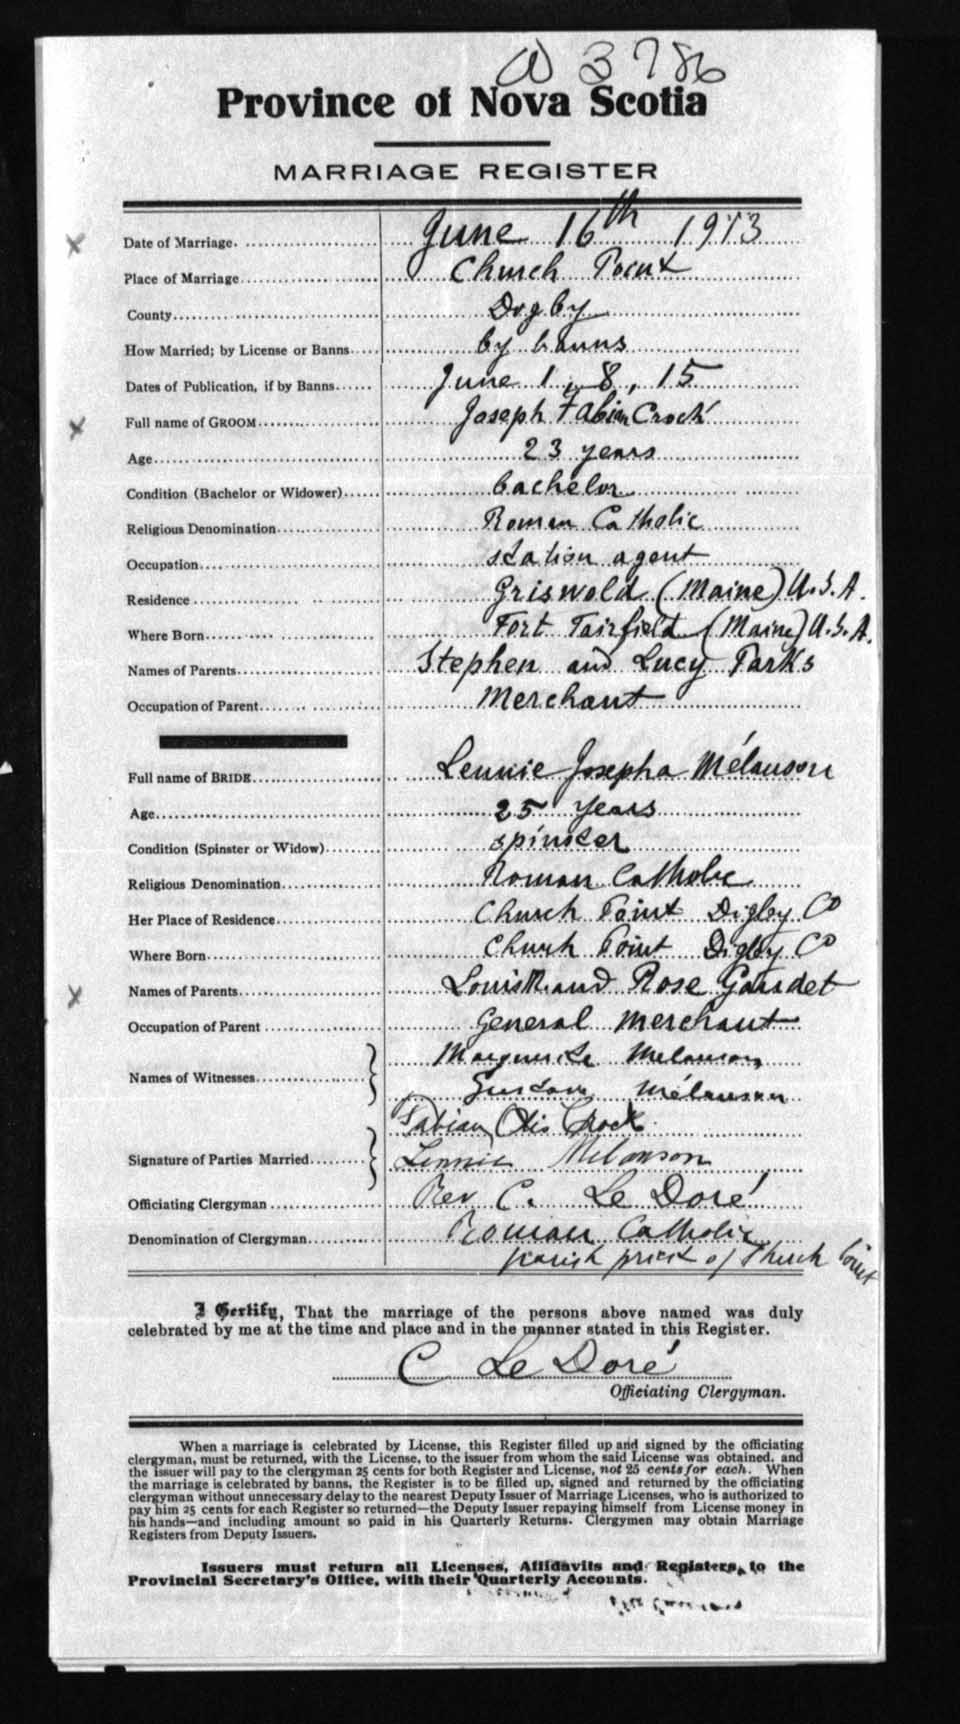 3786
Province of Nova Scotia
MARRIAGE REGISTER
Date of Marriage. June 16th 1913
Place of Marriage Church Point
County Digby
How Married; by License or Banns by banns
Dates of Publication, if by Banns June 1, 8, 15
Full name of GROOM Joseph Fabien Crock
Age 23 years
Condition (Bachelor or Widower) bachelor
Religious Denomination Roman Catholic
Occupation station agent
Residence Griswold (Maine) U.S.A.
Where Born Fort Fairfield (Maine) U.S.A.
Names of Parents Stephen and Lucy Parks
Occupation of Parent Merchant
Full name of BRIDE Lennie Josepha Mélanson
Age 25 years
Condition (Spinster or Widow) spinster
Religious Denomination Roman Catholic
Her Place of Residence Church Point Digby Co
Where Born Church Point Digby Co
Names of Parents and Rose Gaudet
Occupation of Parent General Merchant
Names of Witnesses Marguerite Melanson
Gustave Mélanson
Fabian Otis Crock
Signature of Parties Married Lennie Melanson
Officiating Clergyman Rev C. Le Doré
Denomination of Clergyman Roman Catholic
parish priest of Church Point
I Certify, That the marriage of the persons above named was duly
celebrated by me at the time and place and in the manner stated in this Register.
C Le Doré
Officiating Clergyman.
When a marriage is celebrated by License, this Register filled up and signed by the officiating
clergyman, must be returned, with the License, to the issuer from whom the said License was obtained, and
the issuer will pay to the clergyman 25 cents for both Register and License, not 25 cents for each. When
the marriage is celebrated by banns, the Register is to be filled up, signed and returned by the officiating
clergyman without unnecessary delay to the nearest Deputy Issuer of Marriage Licenses, who is authorized to
pay him 25 cents for each Register so returned—the Deputy Issuer repaying himself from License money in
his hands—and including amount so paid in his Quarterly Returns. Clergymen may obtain Marriage
Registers from Deputy Issuers.
Issuers must return all Licenses, Affidavits and Registers, to the
Provincial Secretary's Office, with their Quarterly Accounts.